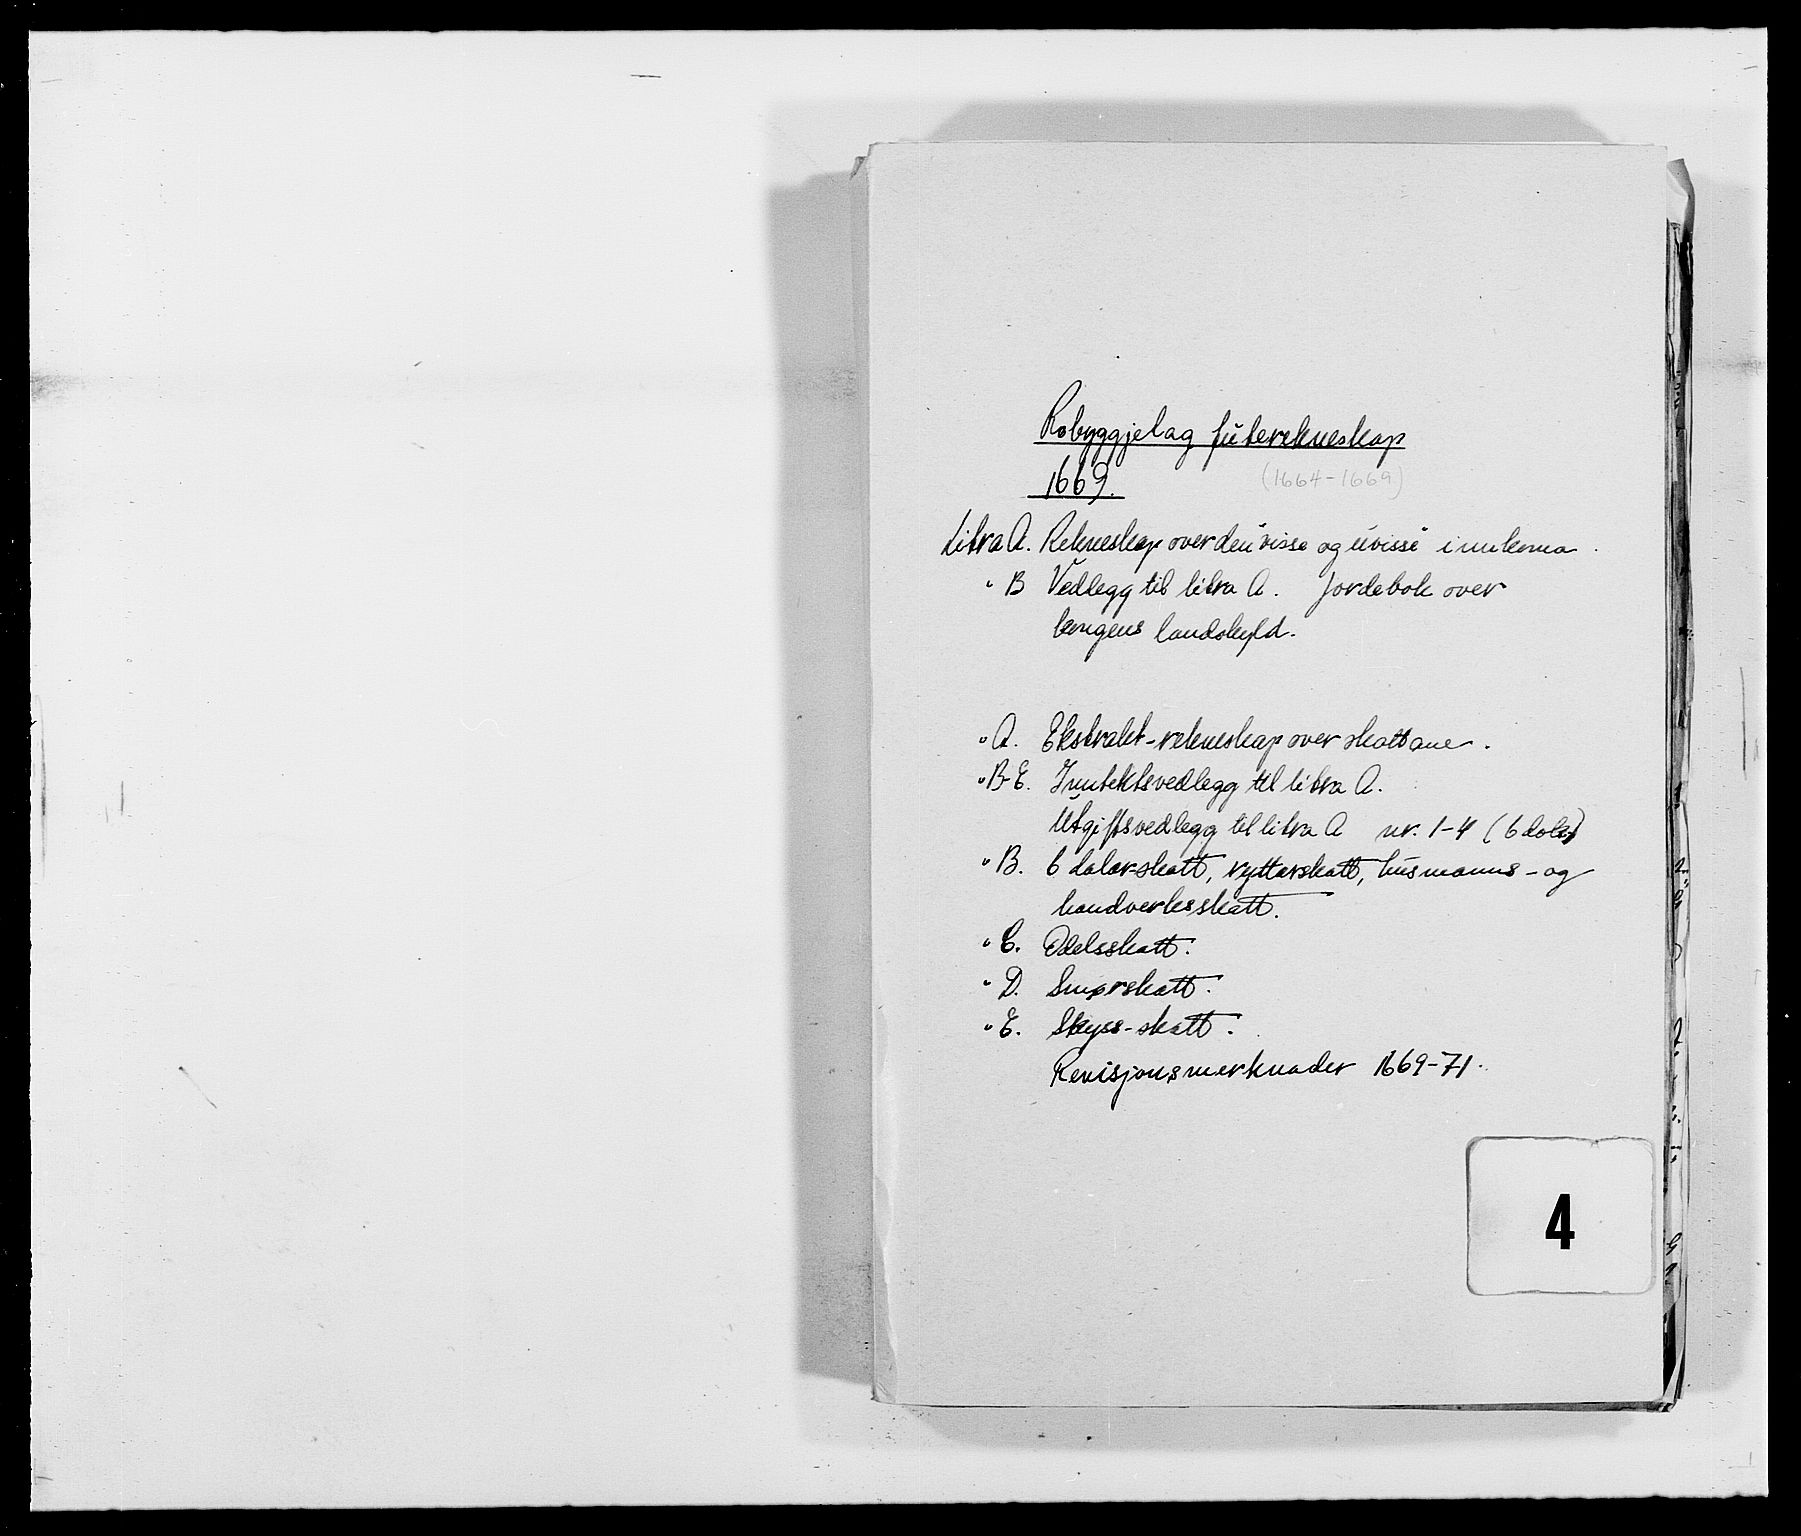 Robyggjelag futerekneskap
1669.
(1664-1669)
Litra A. Rekneskap over den "visse og uvisse" innkoma.
" B Vedlegg til litra A. Jordebok over
kongens landskyld.
" A. Ekstrakt-rekneskap over skattane.
" B-E. Inntektsvedlegg til litra A.
Utgiftsvedlegg til litra A nr. 1-4 (6 dalar)
" B. 6 dalar-skatt, ryttarskatt, husmanns- og
handverksskatt.
" C. Odelsskatt.
" D. Smørskatt.
" E. Skyss-skatt.
Revisjonsmerknader 1669-71.
4